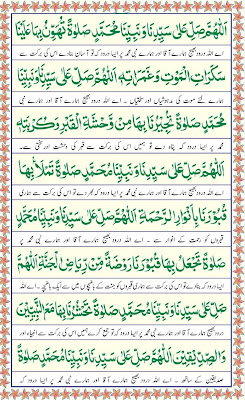 اَللّٰهُمَّ صَلِّ عَلٰى سَيِّدِنَا وَنَبِيِّنَا مُحَمَّدٍ صَلٰوةً تُهَوِّنُ بِهَا عَلَيْنَا
اے اللہ درود بھیج ہمارے آقا اور ہمارے نبی محمد پر ایسا درود کہ تو آسان بنادے اس کی برکت سے
سَكَرَاتِ الْمَوْتِ وَغَمَرَاتِهِ اَللّٰهُمَّ صَلِّ عَلٰى سَيِّدِنَا وَنَبِيِّنَا
ہمارے لئے موت کی اور سختیاں ۔ اے اللہ درود بھیج ہمارے آقا اور ہمارے نبی
مُحَمَّدٍ صَلٰوةً تُجِيْرُنَا بِهَا مِنْ وَحْشَةِ الْقَبْرِ وَكُرْبَتِهِ
محمد پر ایسا درود کہ پناہ دے تو ہمیں اس کی برکت سے قبر کی وحشت اور سے
اَللّٰهُمَّ صَلِّ عَلٰى سَيِّدِنَا وَنَبِيِّنَا مُحَمَّدٍ صَلٰوةً تَمْلَاُ بِهَا
اے اللہ درود بھیج ہمارے آقا اور ہمارے نبی محمد پر ایسا درود کہ بھر دے تو اس کی برکت سے ہماری
قُبُوْرَنَا بِاَنْوَارِ الرَّحْمَةِ اَللّٰهُمَّ صَلِّ عَلٰى سَيِّدِنَا وَنَبِيِّنَا مُحَمَّدٍ
قبروں کو رحمت کے انوار سے ۔ اے اللہ درود بھیج ہمارے آقا اور ہمارے نبی محمد پر
صَلٰوةً تَجْعَلُ بِهَا قُبُوْرَنَا رَوْضَةً مِّنْ رِيَاضِ الْجَنَّةِ اَللّٰهُمَّ
ایسا درود کہ تو اس کی برکت سے ہماری قبروں کو جنت کے میں سے ایک ۔ اے اللہ
صَلِّ عَلٰى سَيِّدِنَا وَنَبِيِّنَا مُحَمَّدٍ صَلٰوةً تَحْشُرُنَا بِهَا مَعَ النَّبِيِّيْنَ
درود بھیج ہمارے آقا اور ہمارے نبی محمد پر ایسا درود کہ تو ہمیں اس کی برکت سے انبیاء اور
وَالصِّدِّيْقِيْنَ اَللّٰهُمَّ صَلِّ عَلٰى سَيِّدِنَا وَنَبِيِّنَا مُحَمَّدٍ صَلٰوةً
صدیقین کے ساتھ ۔ اے اللہ درود بھیج ہمارے آقا اور ہمارے نبی محمد پر ایسا درود کہ